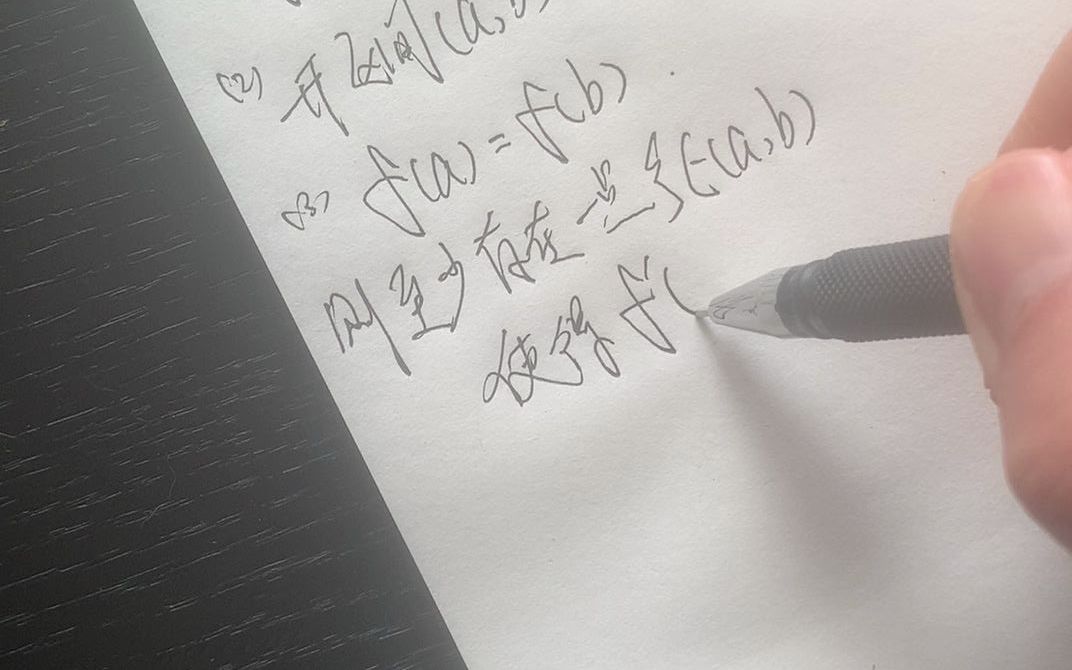 (2) 开区间(a,b)
(3) f(a)=f(b).
则至少存在一点ξ∈(a,b)
使得f'(